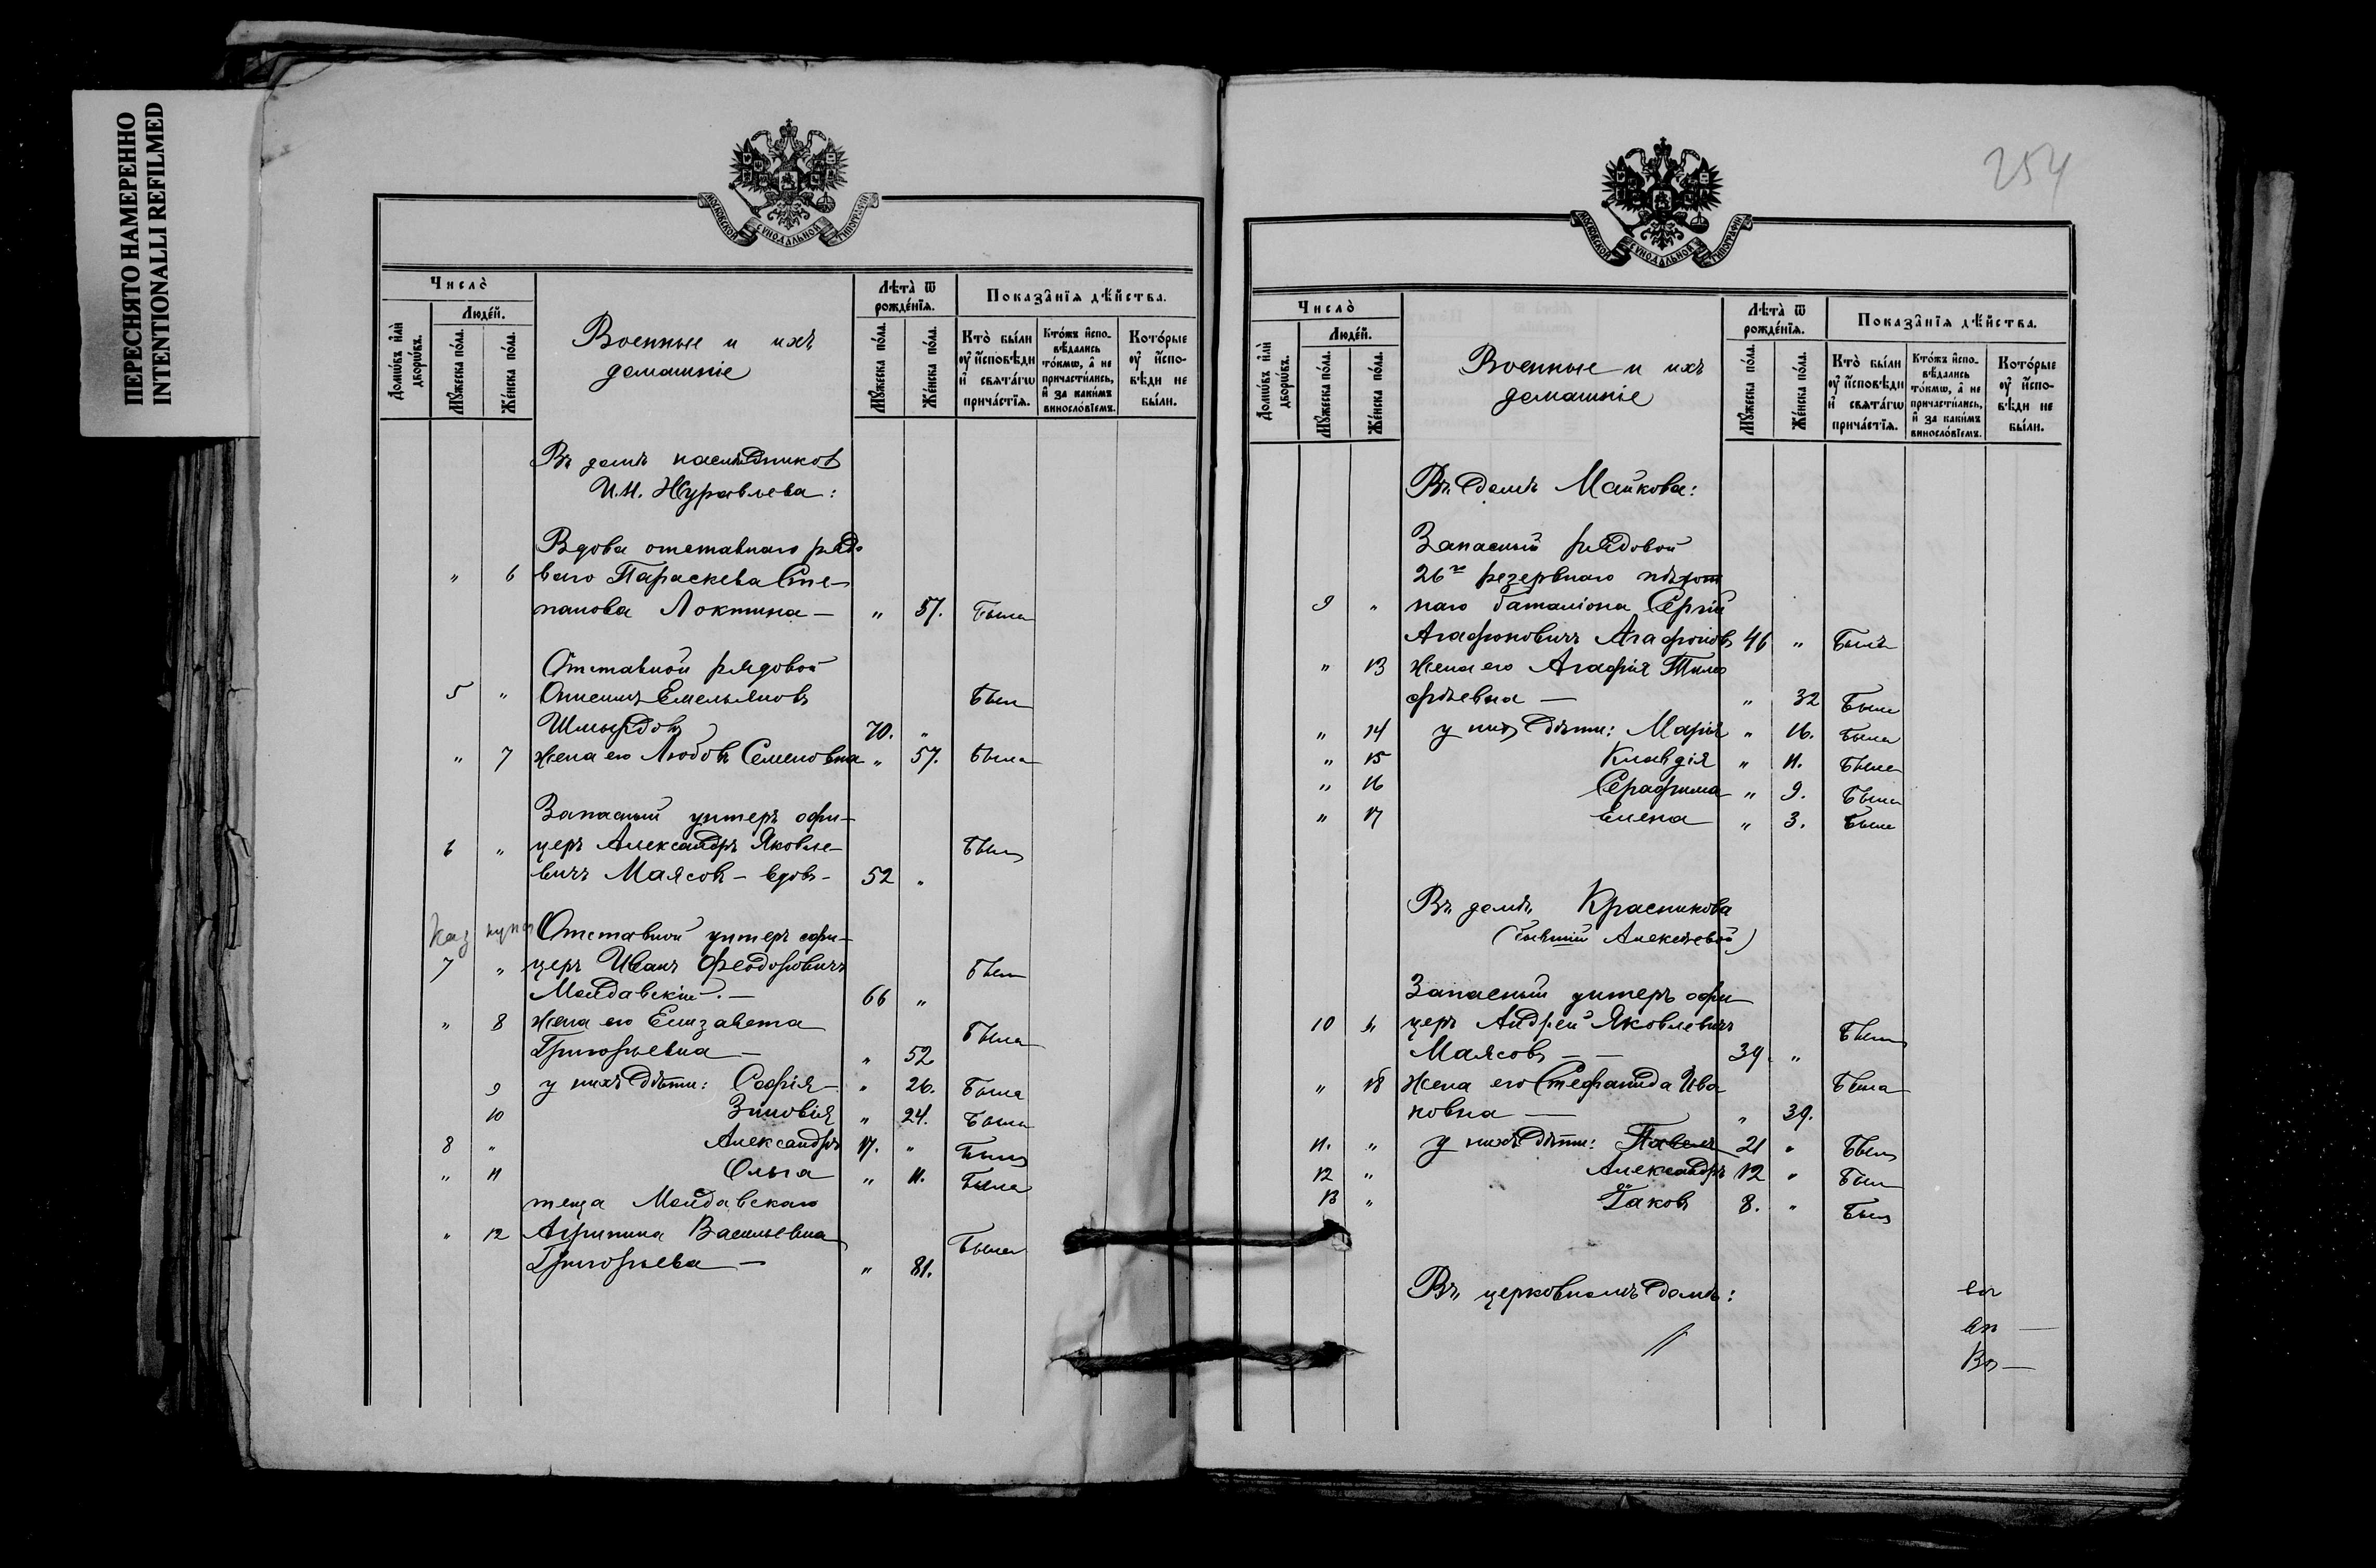 ПЕРЕСНЯТО НАМЕРЕННО
INTENTIONALLI REFILMED
МОСКОВСКОЙ СѴНОДАЛЬНОЙ ТИПОГРАФІИ
Число̀
Домѡ́въ и҆лѝ дворѡ́въ.
Люде́й.
Мꙋ́жеска по́ла.
Же́нска по́ла.
Военные и ихъ
домашніе
Лѣта̀ ѿ рожде́нїѧ.
Мꙋ́жеска по́ла.
Же́нска по́ла.
Показа̑нїѧ дѣ́йства.
Кто̀ бы́ли ᲂу҆ и҆сповѣ́ди и҆ свѧта́гѡ прича́стїѧ.
Кто́жъ и҆сповѣ́дались то́кмѡ, а҆ не причасти́лись, и҆ за каки́мъ виносло́вїемъ.
Кото́рые ᲂу҆ и҆спо́вѣди не бы́ли.
Въ домѣ наслѣдниковъ
И.И. Журавлева:
Вдова отставнаго рядо
" 6 ваго Параскева Сте-
панова Локтина - " 57. Была
Отставной рядовой
5 " Онисимъ Емельяновъ Былъ
Шмыровъ 70. "
" 7 жена его Любовь Семеновна " 57. Была
Запасный унтеръ офи-
6 " церъ Александръ Яковле- Былъ
вичъ Маясовъ - вдовъ - 52 "
Отставной унтеръ офи-
7 " церъ Иванъ Ѳеодоровичъ Былъ
Молдавскій. - 66 "
" 8 жена его Елизавета Была
Григорьевна - " 52
9 у нихъ дѣти: Софія - " 26. Была
10 Зиновія " 24. Была
8 " Александръ 17. " Былъ
" 11 Ольга " 11. Была
теща Молдавскаго
" 12 Агрипина Васильевна Была
Григорьева - " 81.
254
МОСКОВСКОЙ СѴНОДАЛЬНОЙ ТИПОГРАФІИ
Число̀
Домѡ́въ и҆лѝ дворѡ́въ.
Люде́й.
Мꙋ́жеска по́ла.
Же́нска по́ла.
Военные и ихъ
домашніе
Лѣта̀ ѿ рожде́нїѧ.
Мꙋ́жеска по́ла.
Же́нска по́ла.
Показа̑нїѧ дѣ́йства.
Кто̀ бы́ли ᲂу҆ и҆сповѣ́ди и҆ свѧта́гѡ прича́стїѧ.
Кто́жъ и҆сповѣ́дались то́кмѡ, а҆ не причасти́лись, и҆ за каки́мъ виносло́вїемъ.
Кото́рые ᲂу҆ и҆спо́вѣди не бы́ли.
Въ домѣ Майкова:
Запасный рядовой
26го резервнаго пѣхот
9 " наго баталіона Сергій
Агафоновичъ Агафоновъ 46 " Былъ
" 13 жена его Агафія Тимо
фѣевна - " 32 Была
" 14 у нихъ дѣти: Марія " 16. Была
" 15 Клавдія " 11. Была
" 16 Серафима " 9. Была
" 17 Елена " 3. Была
Въ домѣ Красникова
(бывшій Алексѣевой)
Запасный унтеръ офи
10 " церъ Андрей Яковлевичъ Былъ
Маясовъ - - 39. "
" 18 жена его Стефанида Ива Была
новна - " 39.
11. " у нихъ дѣти: Павелъ 21 " Былъ
12 " Александръ 12 " Былъ
13 " Іаковъ 8. " Былъ
Въ церковномъ домѣ: